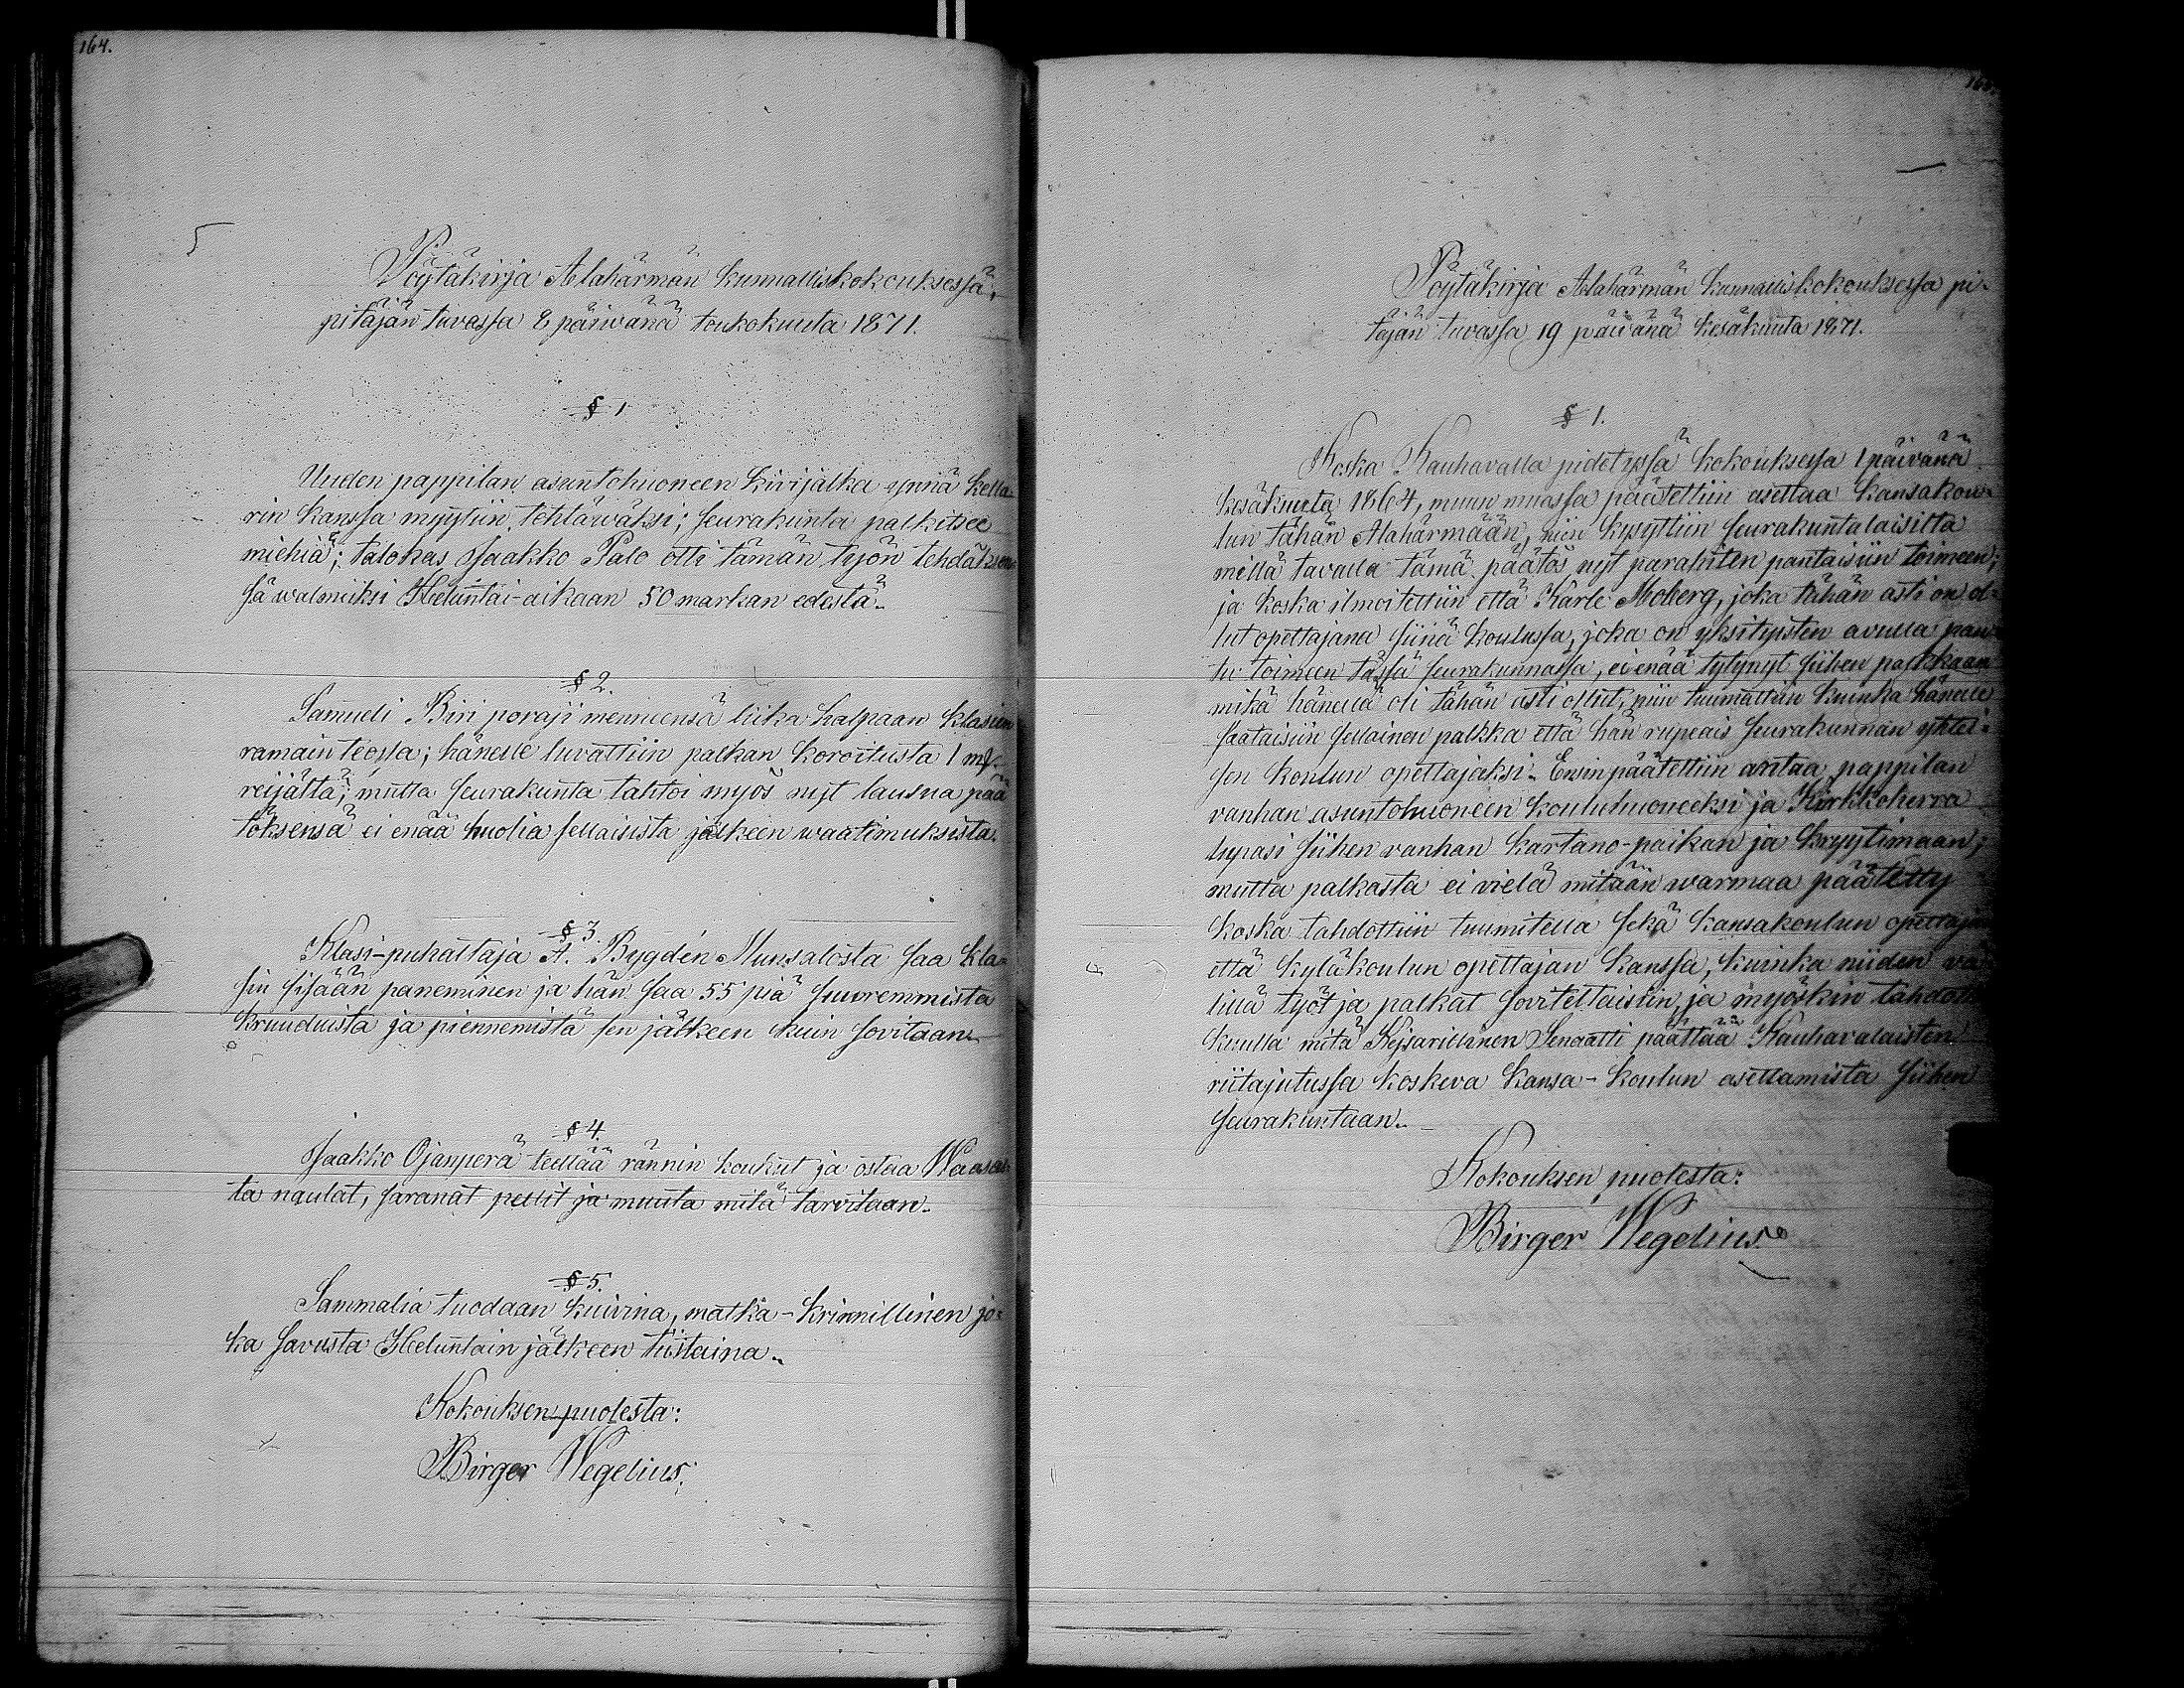 164.
Pöytäkirja Alahärmän kunnalliskokouksessa,
pitäjän tuvassa 8 päiwänä toukokuuta 1871.
§ 1
Uuden pappilan asuntohuoneen kivijalka ynnä kella-
rin kanssa myytiin tehtäwäksi; seurakunta palkitsee
miehiä; talokas Jaakko Palo otti tämän työn tehdäksen-
sä walmiiksi Heluntai-aikaan 50 markan edestä.
§ 2.
Samueli Biri poraji menneensä liika halpaan klasin
ramain teossa; hänelle luvattiin palkan koroitusta 1 mk
reijältä; mutta seurakunta tahtoi myös nyt lausua pää
töksensä ei enää huolia sellaisista jälkeen waatimuksista.
§ 3.
Klasi-puhaltaja A. Bygdén Munsalosta saa kla-
sin sisään paneminen ja hän saa 55 piä suuremmista
kruuduista ja piennemistä sen jälkeen kuin sovitaan.
§ 4.
Jaakko Ojanperä teettää rännin koukut ja ostaa Waasas-
ta naulat, saranat pellit ja muuta mitä tarvitaan.
§ 5.
Sammalia tuodaan kuivina, matka-krinnillinen jo-
ka savusta Heluntain jälkeen tiistaina.
Kokouksen puolesta:
Birger Wegelius.
Pöytäkirja Alahärmän kunnalliskokouksessa pi-
täjän tuvassa 19 päivänä kesäkuuta 1871.
§ 1.
Koska Kauhavalla pidetyssä kokouksessa 1 päivänä
kesäkuuta 1864, muun muassa päätettiin asettaa kansakou-
lun tähän Alahärmään, niin kysyttiin seurakuntalaisilta
millä tavalla tämä päätös nyt parahiten pantaisiin toimeen;
ja koska ilmoitettiin että Kärle Moberg, joka tähän asti on ol-
lut opettajana siinä koulussa, joka on yksityisten avulla pan-
tu toimeen tässä seurakunnassa, ei enää tytynyt siihen palkkaan
mikä hänellä oli tähän asti ollut, niin tuumattiin kuinka hänelle
saataisiin sellainen palkka että hän rupeais seurakunnan yhtei-
sen koulun opettajaksi. Ensin päätettiin antaa pappilan
vanhan asuntohuoneen kouluhuoneeksi ja Kirkkoherra
lupasi siihen vanhan kartano-paikan ja kryytimaan;
mutta palkasta ei vielä mitään warmaa päätetty
koska tahdottiin tuumitella sekä kansakoulun opettajan
että kyläkoulun opettajan kanssa, kuinka niiden vä
lillä työt ja palkat soviteltaisiin, ja myöskin tahdott
kuulla mitä Kejsarillinen Senaatti päättää Kauhavalaisten
riitajutussa koskeva kansa-koulun asettamista siihen
seurakuntaan.
Kokouksen puolesta:
Birger Wegelius.